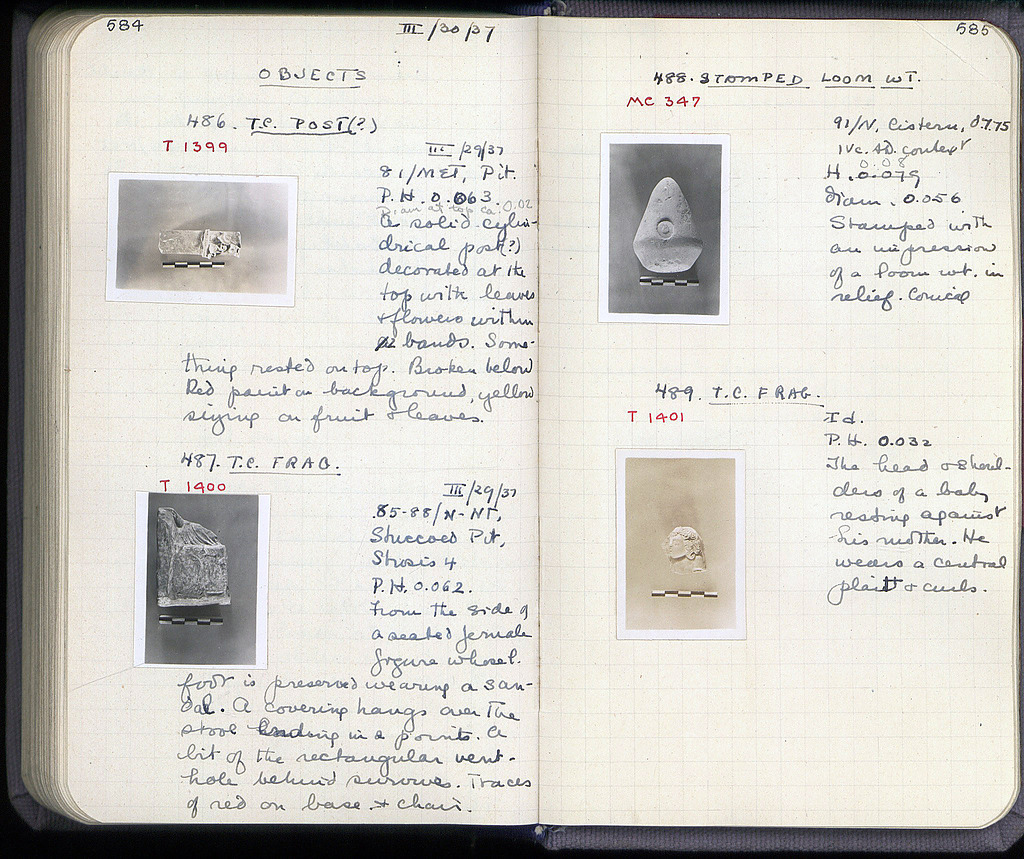 584
III/30/37
OBJECTS
486. T.C. POST(?)
T 1399
III/29/37
81/MET, Pit.
P.H. 0.063.
Diam at top ca. 0.02
A solid cylin-
drical post(?)
decorated at the
top with leaves
+ flowers within
bands. Some-
thing rested on top. Broken below
Red paint on background, yellow
sizing on fruit & leaves.
487. T.C. FRAG.
T 1400
III/29/37
85-88/N-NT,
Stuccoed Pit,
Strosis 4
P.H. 0.062.
From the side of
a seated female
figure whose l.
foot is preserved wearing a san-
dal. A covering hangs over the
stool ending in a point. A
bit of the rectangular vent-
hole behind survives. Traces
of red on base + chair.
585
488. STAMPED LOOM WT.
MC 347
91/N, Cistern, 07.75
IV c. AD. context
0.08
H. 0.079
Diam. 0.056
Stamped with
an impression
of a loom wt. in
relief. Conical
489. T.C. FRAG.
T 1401
Id.
P.H. 0.032
The head & shoul-
ders of a baby
resting against
his mother. He
wears a central
plait & curls.